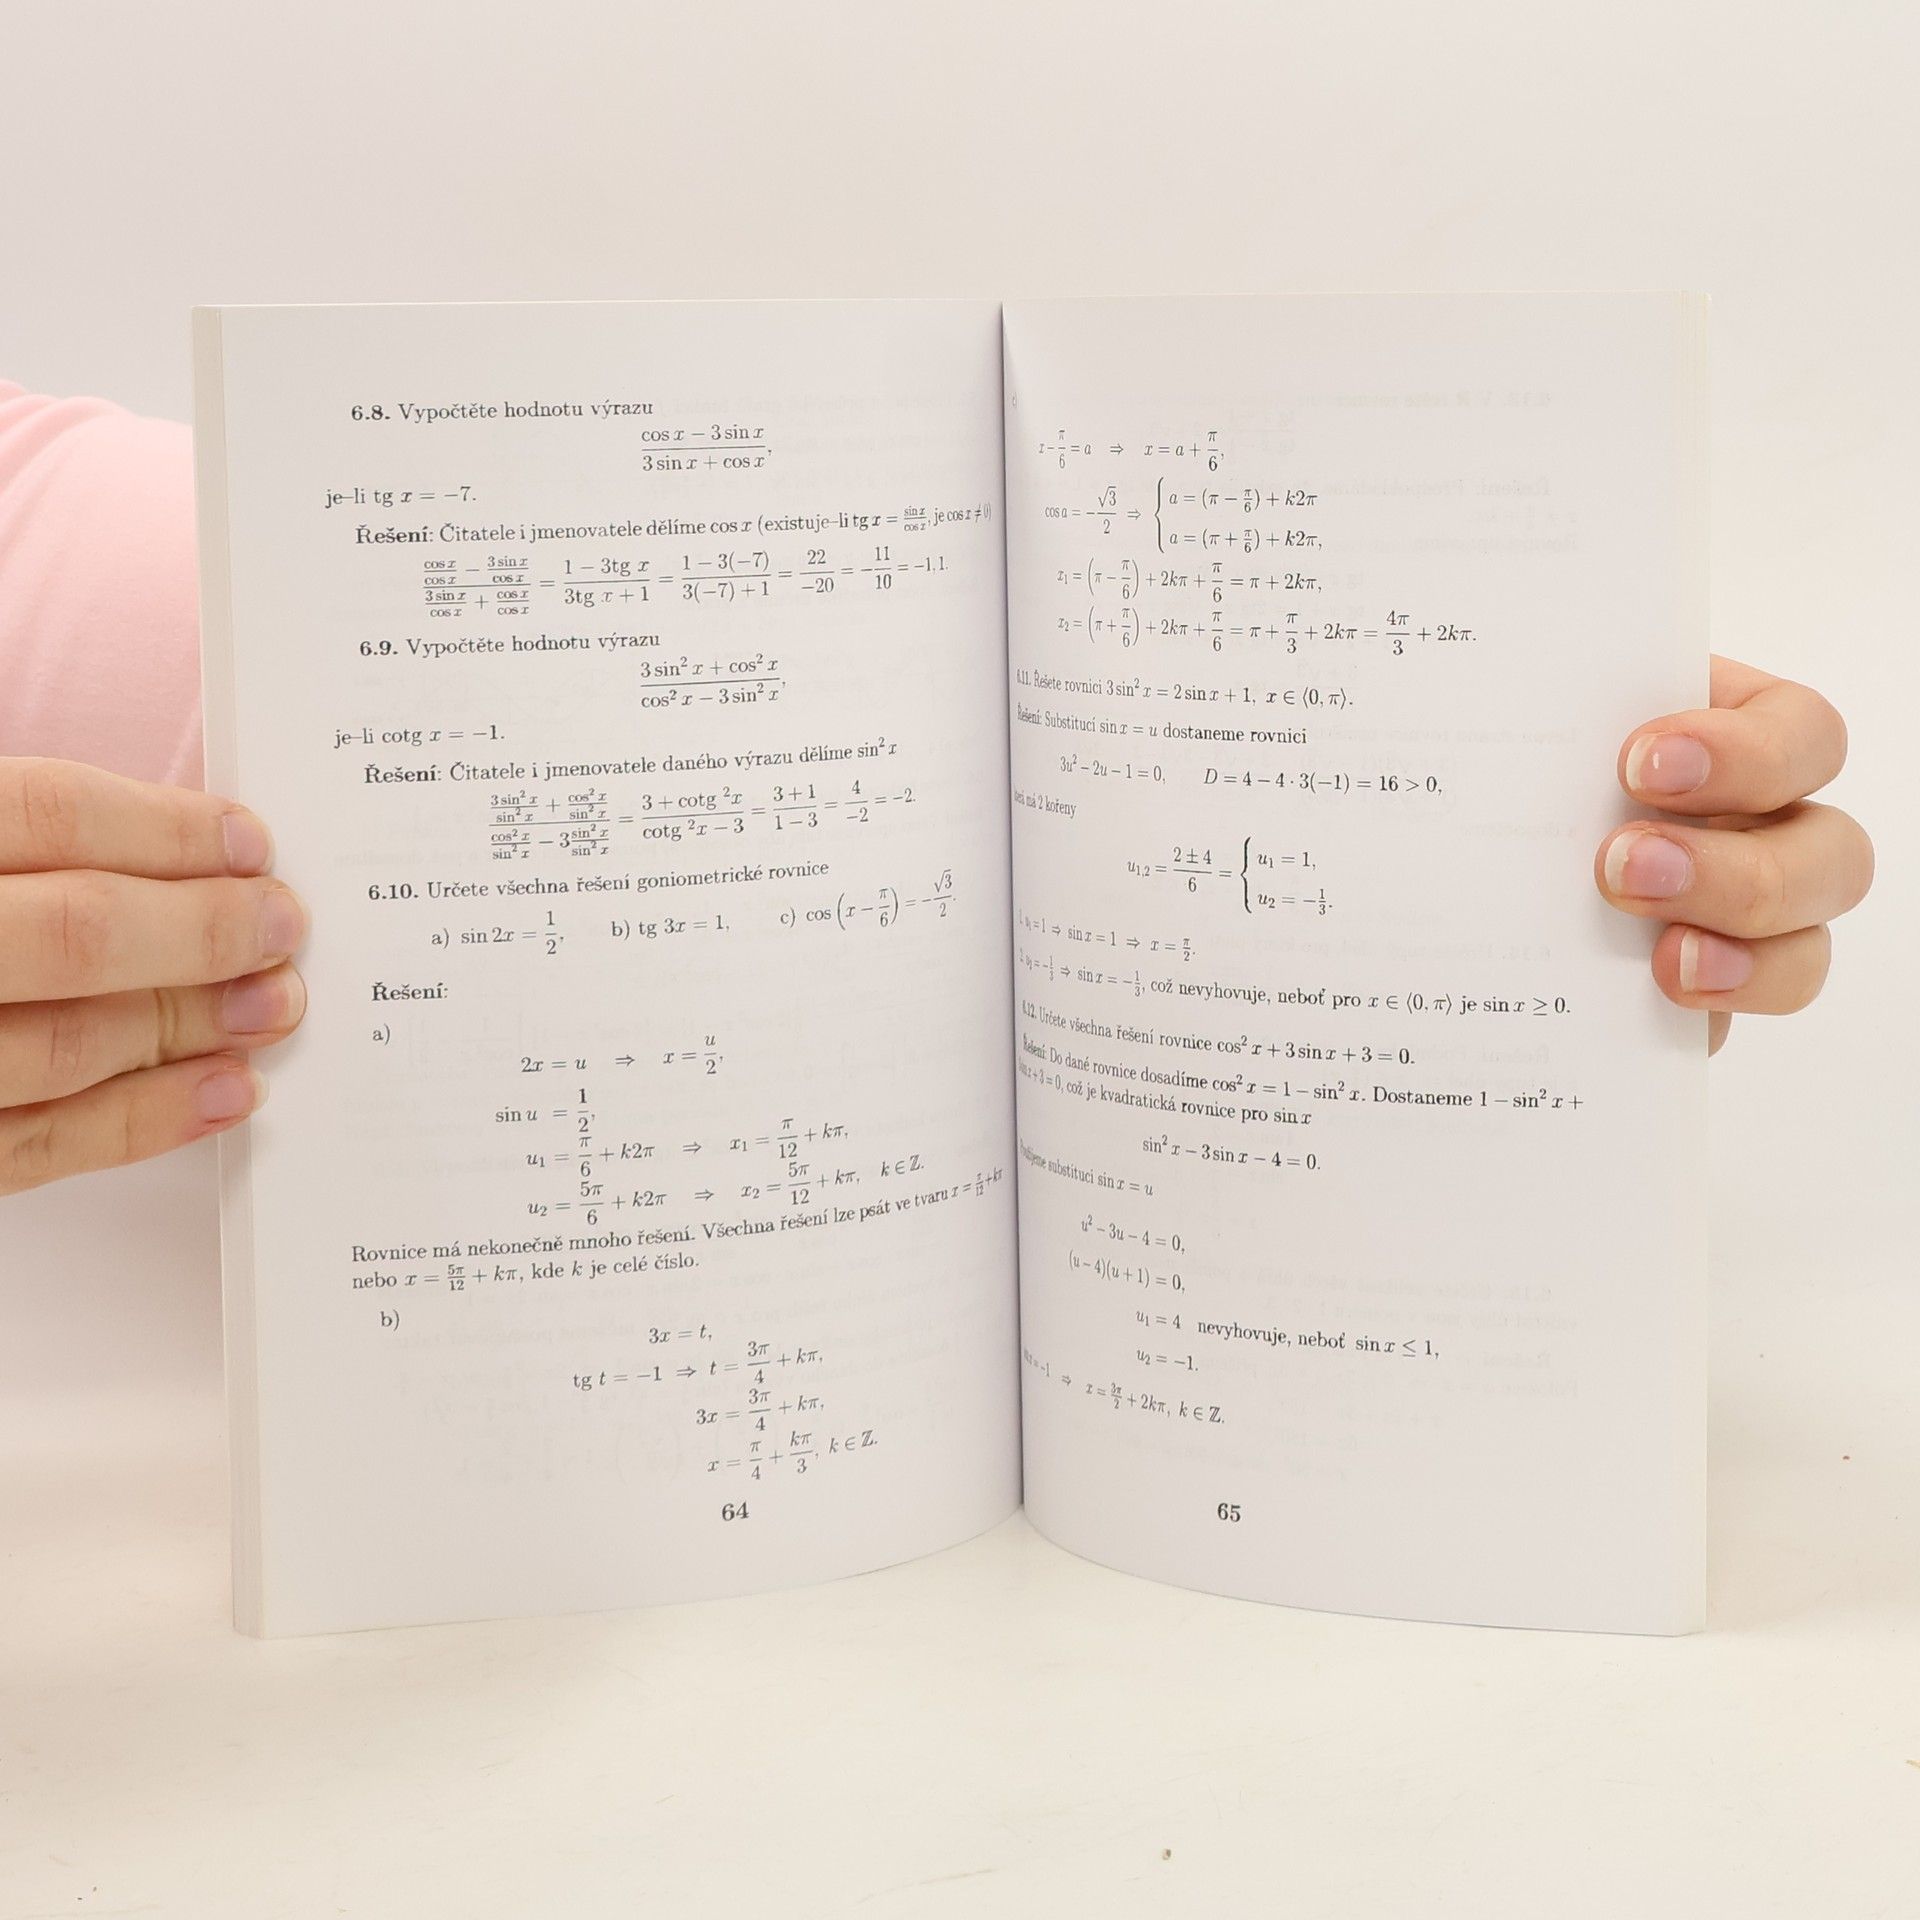 6.8. Vypočtěte hodnotu výrazu
cos x − 3 sin x
3 sin x + cos x,
je–li tg x = −7.
Řešení: Čitatele i jmenovatele dělíme cos x (existuje–li tg x = sin x/cos x, je cos x ≠ 0)
(cos x/cos x − 3 sin x/cos x)/(3 sin x/cos x + cos x/cos x) = (1 − 3tg x)/(3tg x + 1) = (1 − 3(−7))/(3(−7) + 1) = 22/−20 = −11/10 = −1,1.
6.9. Vypočtěte hodnotu výrazu
3 sin² x + cos² x
cos² x − 3 sin² x,
je–li cotg x = −1.
Řešení: Čitatele i jmenovatele daného výrazu dělíme sin² x
(3 sin² x/sin² x + cos² x/sin² x)/(cos² x/sin² x − 3 sin² x/sin² x) = (3 + cotg ²x)/(cotg ²x − 3) = (3 + 1)/(1 − 3) = 4/−2 = −2.
6.10. Určete všechna řešení goniometrické rovnice
a) sin 2x = 1/2, b) tg 3x = 1, c) cos (x − π/6) = −√3/2.
Řešení:
a)
2x = u ⇒ x = u/2,
sin u = 1/2,
u₁ = π/6 + k2π ⇒ x₁ = π/12 + kπ,
u₂ = 5π/6 + k2π ⇒ x₂ = 5π/12 + kπ, k ∈ ℤ.
Rovnice má nekonečně mnoho řešení. Všechna řešení lze psát ve tvaru x = π/12 + kπ
nebo x = 5π/12 + kπ, kde k je celé číslo.
b)
3x = t,
tg t = −1 ⇒ t = 3π/4 + kπ,
3x = 3π/4 + kπ,
x = π/4 + kπ/3, k ∈ ℤ.
64
x − π/6 = a ⇒ x = a + π/6,
cos a = −√3/2 ⇒ { a = (π − π/6) + k2π
a = (π + π/6) + k2π,
x₁ = (π − π/6) + 2kπ + π/6 = π + 2kπ,
x₂ = (π + π/6) + 2kπ + π/6 = π + π/3 + 2kπ = 4π/3 + 2kπ.
6.11. Řešete rovnici 3 sin² x = 2 sin x + 1, x ∈ ⟨0, π⟩.
Řešení: Substitucí sin x = u dostaneme rovnici
3u² − 2u − 1 = 0, D = 4 − 4 · 3(−1) = 16 > 0,
má 2 kořeny
u₁,₂ = (2 ± 4)/6 = { u₁ = 1,
u₂ = −1/3.
1. u₁ = 1 ⇒ sin x = 1 ⇒ x = π/2.
2. u₂ = −1/3 ⇒ sin x = −1/3, což nevyhovuje, neboť pro x ∈ ⟨0, π⟩ je sin x ≥ 0.
6.12. Určete všechna řešení rovnice cos² x + 3 sin x + 3 = 0.
Řešení: Do dané rovnice dosadíme cos² x = 1 − sin² x. Dostaneme 1 − sin² x +
3 sin x + 3 = 0, což je kvadratická rovnice pro sin x
sin² x − 3 sin x − 4 = 0.
Použijeme substituci sin x = u
u² − 3u − 4 = 0,
(u − 4)(u + 1) = 0,
u₁ = 4 nevyhovuje, neboť sin x ≤ 1,
u₂ = −1.
sin x = −1 ⇒ x = 3π/2 + 2kπ, k ∈ ℤ.
65